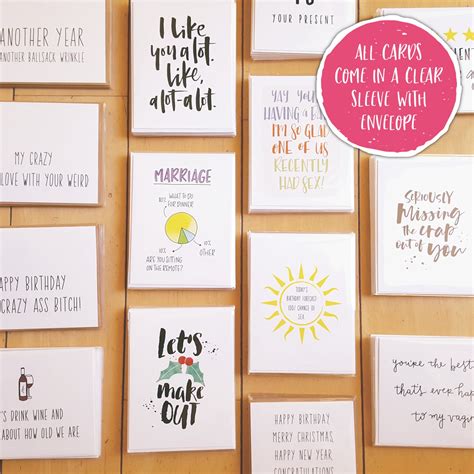 ANOTHER YEAR
ANOTHER BALLSACK WRINKLE
MY CRAZY
LOVE WITH YOUR WEIRD
HAPPY BIRTHDAY
CRAZY ASS BITCH!
LET'S DRINK WINE AND
ABOUT HOW OLD WE ARE
I like
you alot.
Like,
alot-alot.
MARRIAGE
WHAT TO EAT
FOR DINNER?
OTHER
ARE YOU SITTING
ON THE REMOTE?
Let's
make
OUT
YOUR PRESENT
YAY YOU'RE
HAVING A
I'M SO GLAD
ONE OF US
RECENTLY
HAD SEX!
TODAY'S
BIRTHDAY FORECAST:
100% CHANCE OF
SEX.
HAPPY BIRTHDAY
MERRY CHRISTMAS,
HAPPY NEW YEAR,
CONGRATULATIONS
ALL CARDS
COME IN A CLEAR
SLEEVE WITH
ENVELOPE
SERIOUSLY
Missing
the crap
out of you
you're the best
that's ever
to my